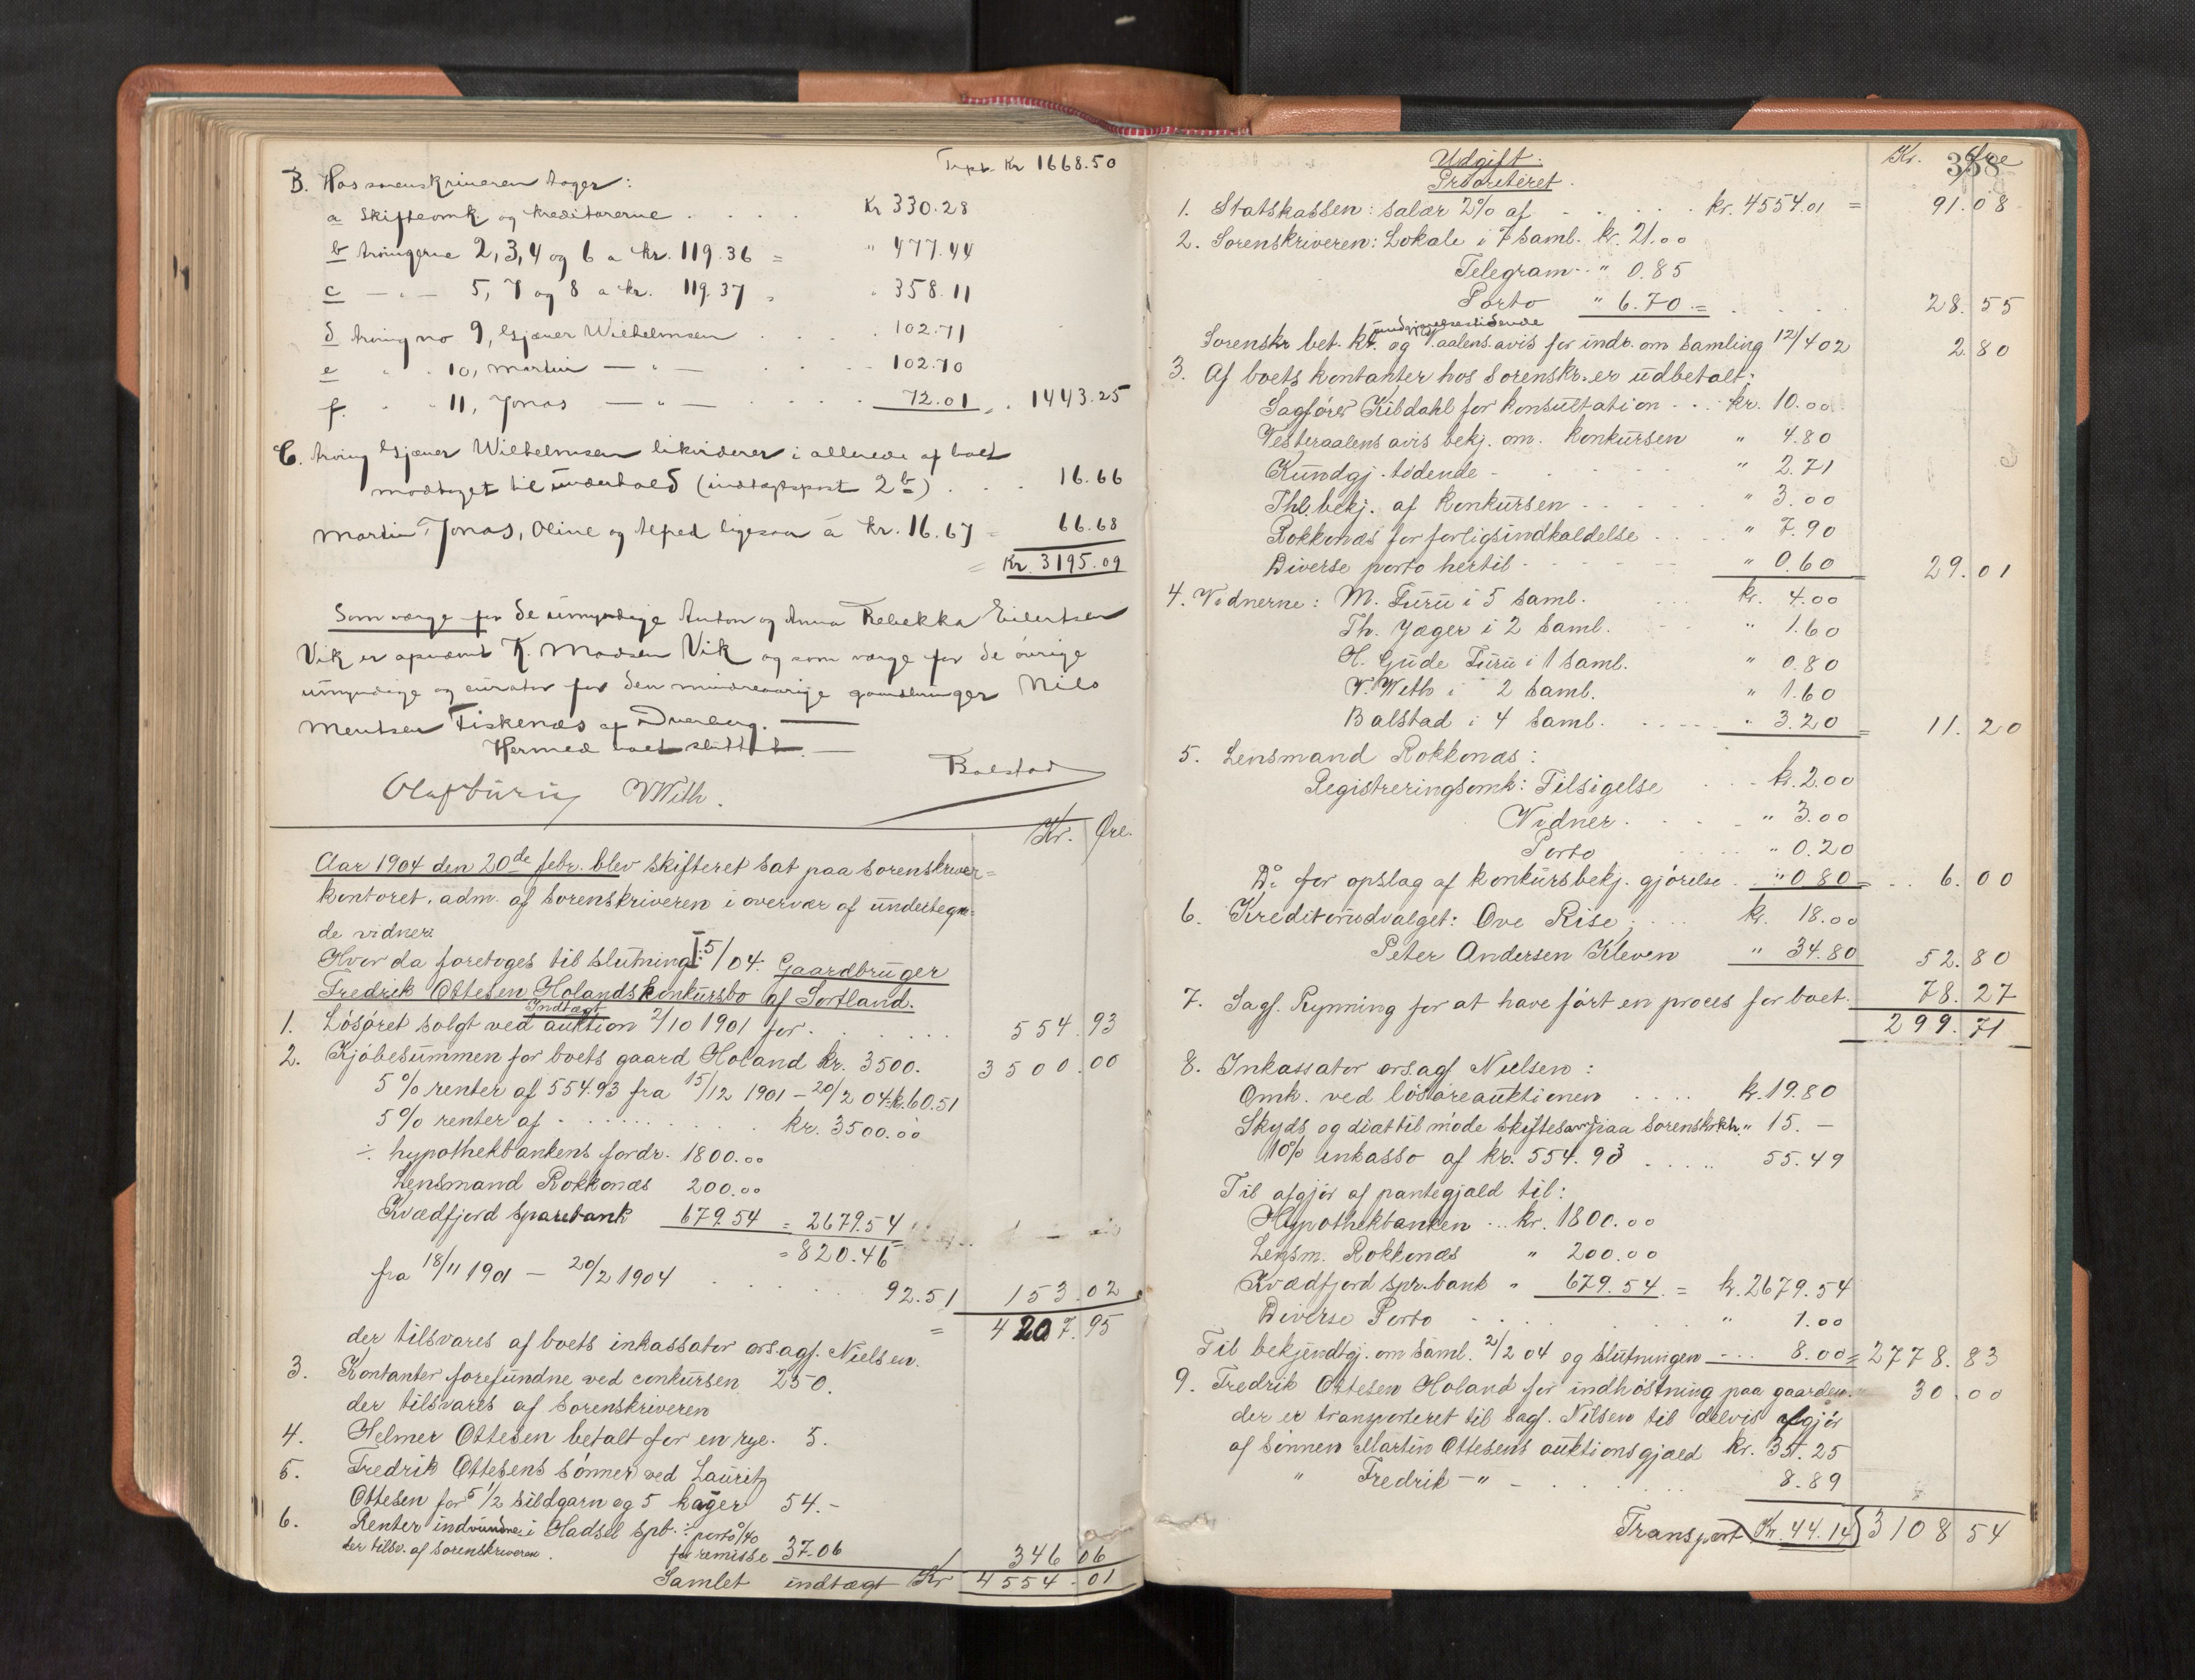 Trpt. Kr 1668.50
B. Hos sorenskriveren tages:
a Skifteomk. og kreditorerne . . . . Kr 330.28
b Arvingerne 2, 3, 4 og 6 a kr. 119.36 = " 477.44
c — " — 5, 7 og 8 a kr. 119.37 = " 358.11
d Arving no 9, Ejnar Wilhelmsen . . . . 102.71
e " " 10, Martin — " — . . . . 102.70
f. " " 11, Jonas — " — . . . . 72.01 = . 1443.25
C. Arving Ejnar Wilhelmsen likviderer i allerede af boet
modtaget til underhold (indtægtspost 2 b) . . . 16.66
Martin, Jonas, Oline og Alfred ligesaa a kr. 16.67 = 66.68
= Kr. 3195.09
Som værge for de umyndige Anton og Anna Rebekka Eilertsen
Vik er opnævnt K. Madsen Vik og som værge for de øvrige
umyndige og curator for den mindreaarige gaardbruger Nils
Mentsen Fiskenæs af Dverberg. —
Hermed boet sluttet. —
Balstad
Olaf Furu VWith.
Kr. Øre.
Aar 1904 den 20de febr. blev skifteret sat paa sorenskriver=
kontoret. adm. af sorenskriveren i overvær af undertegn=
de vidner.
Hvor da foretoges til slutning I: 5/04. Gaardbruger
Fredrik Ottesen Holands konkursbo af Sortland.
Indtægt
1. Løsøret solgt ved auktion 2/10 1901 for . . . . . 554.93
2. Kjøbesummen for boets gaard Holand kr. 3500. 3500.00
5 % renter af 554.93 fra 15/12 1901 – 20/2 04 = k. 60.51
5 % renter af . . . . . . . . . kr. 3500.00
÷ hypothekbankens fordr. 1800.00
Lensmand Rokkonæs 200.00
Kvædfjord sparebank 679.54 = 2679.54
= 820.46
fra 18/11 1901 – 20/2 1904 . . . . . 92.51 153.02
= 4207.95
der tilsvares af boets inkassator ors.agf. Nielsen.
3. Kontanter forefundne ved conkursen 250.
der tilsvares af Sorenskriveren
4. Helmer Ottesen betalt for en rye. 5.
5. Fredrik Ottesens sønner ved Lauritz
Ottesen for 5 1/2 sildgarn og 5 kager 54.-
6. Renter indvundne i Hadsel Spb. ÷ porto 0/40
der tilsv. af sorenskriveren. for remisse 37.06 346.06
Samlet indtægt Kr 4554.01
Udgift. Kr. Øre
338
Prioriteret.
1. Statskassen: salær 2% af . . . . . kr. 4554.01 = 91.08
2. Sorenskriveren: Lokale i 7 saml. kr. 21.00
Telegram - " 0.85
Porto " 6.70 = . . . . 28.55
kundgjørelsestidende
Sorenskr bet. kr. og V.aalens avis for indr. om samling 12/4 02 2.80
3. Af boets kontanter hos Sorenskr. er udbetalt:
Sagfører Kildahl for konsultation . . . kr. 10.00
Vesteraalens avis bekj. om. konkursen " 4.80
Kundgj. tidende - . . . . " 2.71
Thl. bekj. af konkursen . . . . " 3.00
Rokkonæs for forligsindkaldelse . . . . " 7.90
Diverse porto hertil . . . . " 0.60 29.01
4. Vidnerne: M. Furu i 5 saml. . . . kr. 4.00
Th. Jæger i 2 saml. . . " 1.60
H. Gude Furu i 1 saml. " 0.80
V. With i 2 saml. " 1.60
Balstad i 4 saml. . . . . " 3.20 = 11.20
5. Lensmand Rokkonæs:
Registreringsomk: Tilsigelse . . . kr. 2.00
Vidner. . . . " 3.00
Porto . . . . " 0.20
Do. for opslag af konkursbekj. gjørelse . . " 0.80 = . . 6.00
6. Kreditorudvalget: Ove Rise, . . . kr. 18.00
Peter Andersen Kleven " 34.80 52.80
7. Sagf. Rynning for at have ført en proces for boet. 78.27
299.71
8. Inkassator ors.agf Nielsen:
Omk. ved løsøreauktionen . . . . k. 19.80
Skyds og diæt til møde skiftesaml paa sorenskrkt. " 15. —
10% inkasso af kr. 554.93 . . . . . 55.49
Til afgjør af pantegjæld til:
Hypothekbanken . . . kr. 1800.00
Lensm. Rokkonæs " 200.00
Kvædfjord spr.bank " 679.54 = k. 2679.54
Diverse Porto . . . . " 1.00
Til bekjendtgj. om saml. 2/2 04 og slutningen . . . 8.00 = 2778.83
9. Fredrik Ottesen Holand for indhøstning paa gaarden. 30.00
der er transporteret til sagf. Nilsen til delvis afgjør
af sønnen Martin Ottesens auktionsgjæld kr. 35.25
" Fredrik — " — . . . . . . 8.89
Transport Kr. 44.14 3108.54